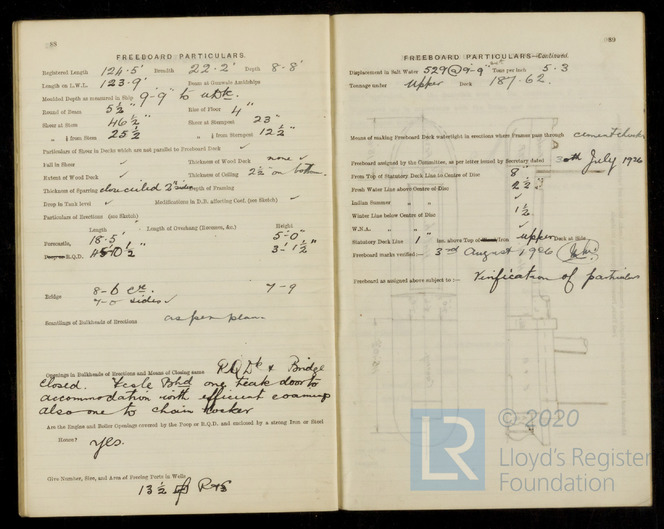 88
FREEBOARD PARTICULARS.
Registered Length 124·5' Breadth 22·2' Depth 8·8'
Length on L.W.L. 123·9' Beam at Gunwale Amidships
Moulded Depth as measured in Ship 9'-9" to u. Dk.
Round of Beam 5½" Rise of Floor 4"
Sheer at Stem 46½" Sheer at Sternpost 23"
" ⅛ from Stem 25½ " ⅛ from Sternpost 12½"
Particulars of Sheer in Decks which are not parallel to Freeboard Deck ✓
Fall in Sheer ✓ Thickness of Wood Deck none ✓
Extent of Wood Deck ✓ Thickness of Ceiling 2½" on bottom.
Thickness of Sparring 2" sides Depth of Framing
Drop in Tank level ✓ Modifications in D.B. affecting Coef. (see Sketch) ✓
Particulars of Erections (see Sketch)
Length Length of Overhang (Recesses, &c.) Height
Forecastle, 18·5' 5'-0"
Poop or R.Q.D. 3'-1½"
Bridge 8-6 7-9
7-0 sides ✓
Scantlings of Bulkheads of Erections as per plan.
Openings in Bulkheads of Erections and Means of Closing same R.Q. Dk & Bridge
closed. Fcsle Bhd one teak door to
accommodation with efficient coaming
also one to chain locker
Are the Engine and Boiler Openings covered by the Poop or R.Q.D. and enclosed by a strong Iron or Steel
House? yes.
Give Number, Size, and Area of Freeing Ports in Wells
13½ P&S
89
FREEBOARD PARTICULARS—Continued.
Displacement in Salt Water 529 @ 9'-9" Tons per inch 5·3
Tonnage under upper Deck 187·62.
Means of making Freeboard Deck watertight in erections where Frames pass through cement chocks
Freeboard assigned by the Committee, as per letter issued by Secretary dated 30th July 1926
From Top of Statutory Deck Line to Centre of Disc 8"
Fresh Water Line above Centre of Disc 2½"
Indian Summer " " ✓
Winter Line below Centre of Disc 1½
W.N.A. " " ✓
Statutory Deck Line 1" ins. above Top of Wood/Iron upper Deck at Side.
Freeboard marks verified:— 3rd August 1926
Freeboard as assigned above subject to :— Verification of particulars
© 2020
LR
Lloyd's Register
Foundation